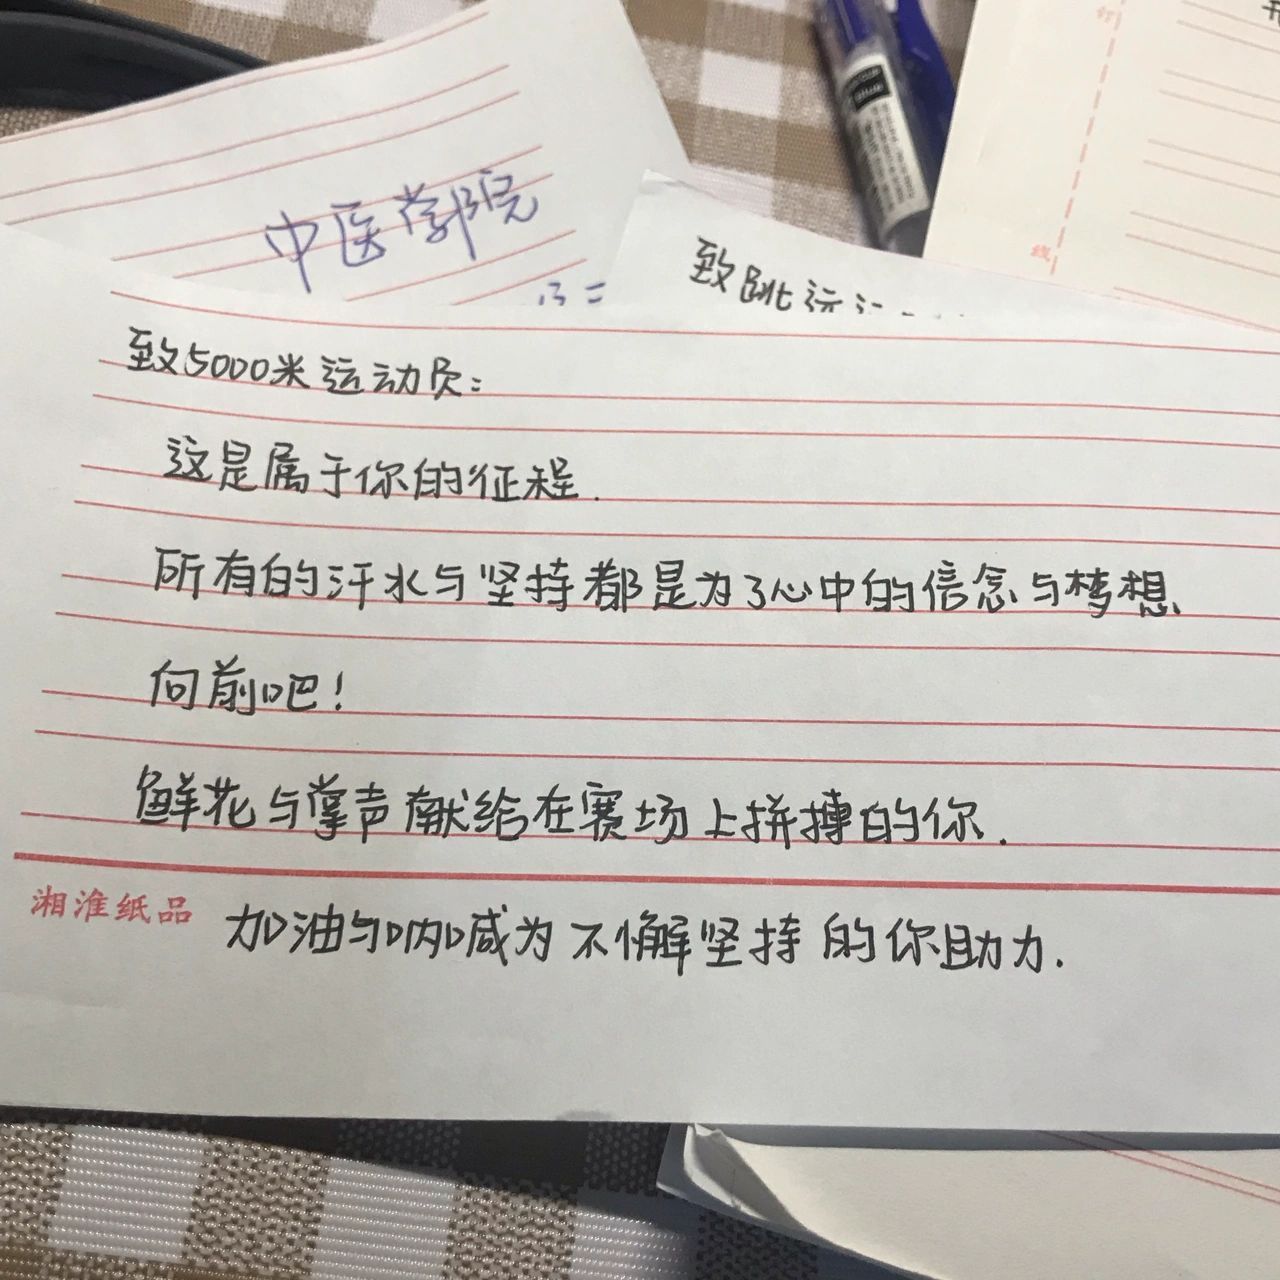 中医学部院
致跳远运
致5000米运动员：
这是属于你的征程.
所有的汗水与坚持都是为了心中的信念与梦想、
向前吧！
鲜花与掌声献给在赛场上拼搏的你.
湘淮纸品
加油与呐喊成为不懈坚持的你助力.
订
线